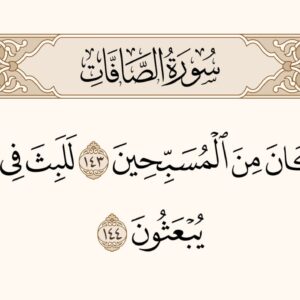 سُورَةُ الصَّافَّاتِ
كَانَ مِنَ ٱلْمُسَبِّحِينَ ١٤٣ لَلَبِثَ فِي
يُبْعَثُونَ ١٤٤